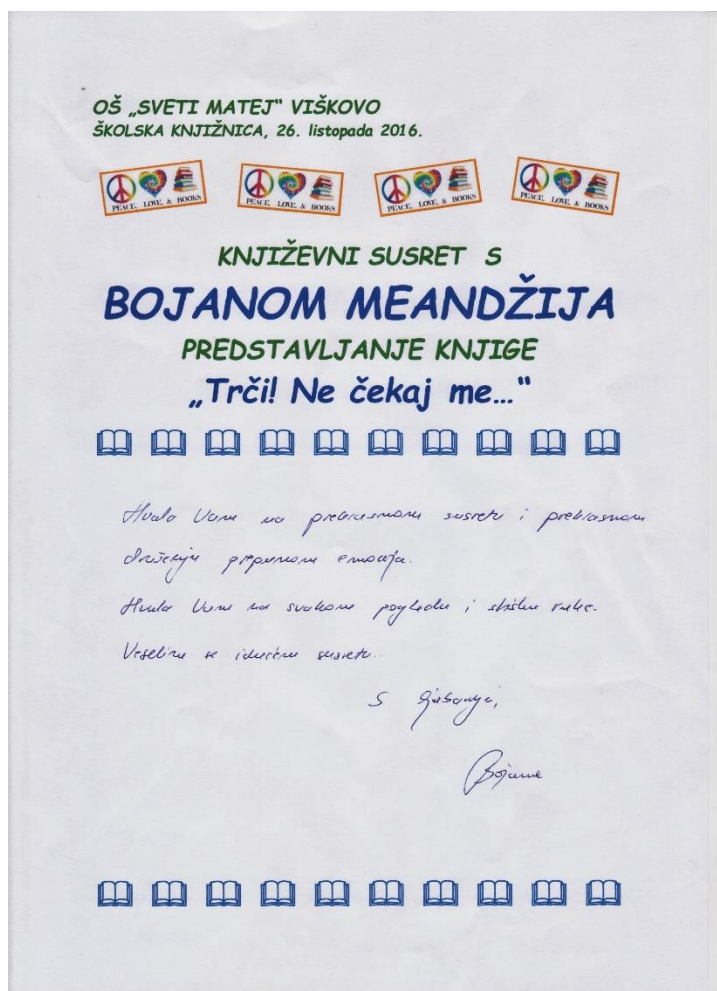 OŠ „SVETI MATEJ“ VIŠKOVO
ŠKOLSKA KNJIŽNICA, 26. listopada 2016.
PEACE, LOVE, & BOOKS PEACE, LOVE, & BOOKS PEACE, LOVE, & BOOKS PEACE, LOVE, & BOOKS
KNJIŽEVNI SUSRET S
BOJANOM MEANDŽIJA
PREDSTAVLJANJE KNJIGE
„Trči! Ne čekaj me...“
Hvala Vam na prekrasnom susretu i prekrasnom
druženju prepunom emocija.
Hvala Vam na svakom pogledu i stisku ruke.
Veselim se idućem susretu.
S ljubavlju,
Bojana